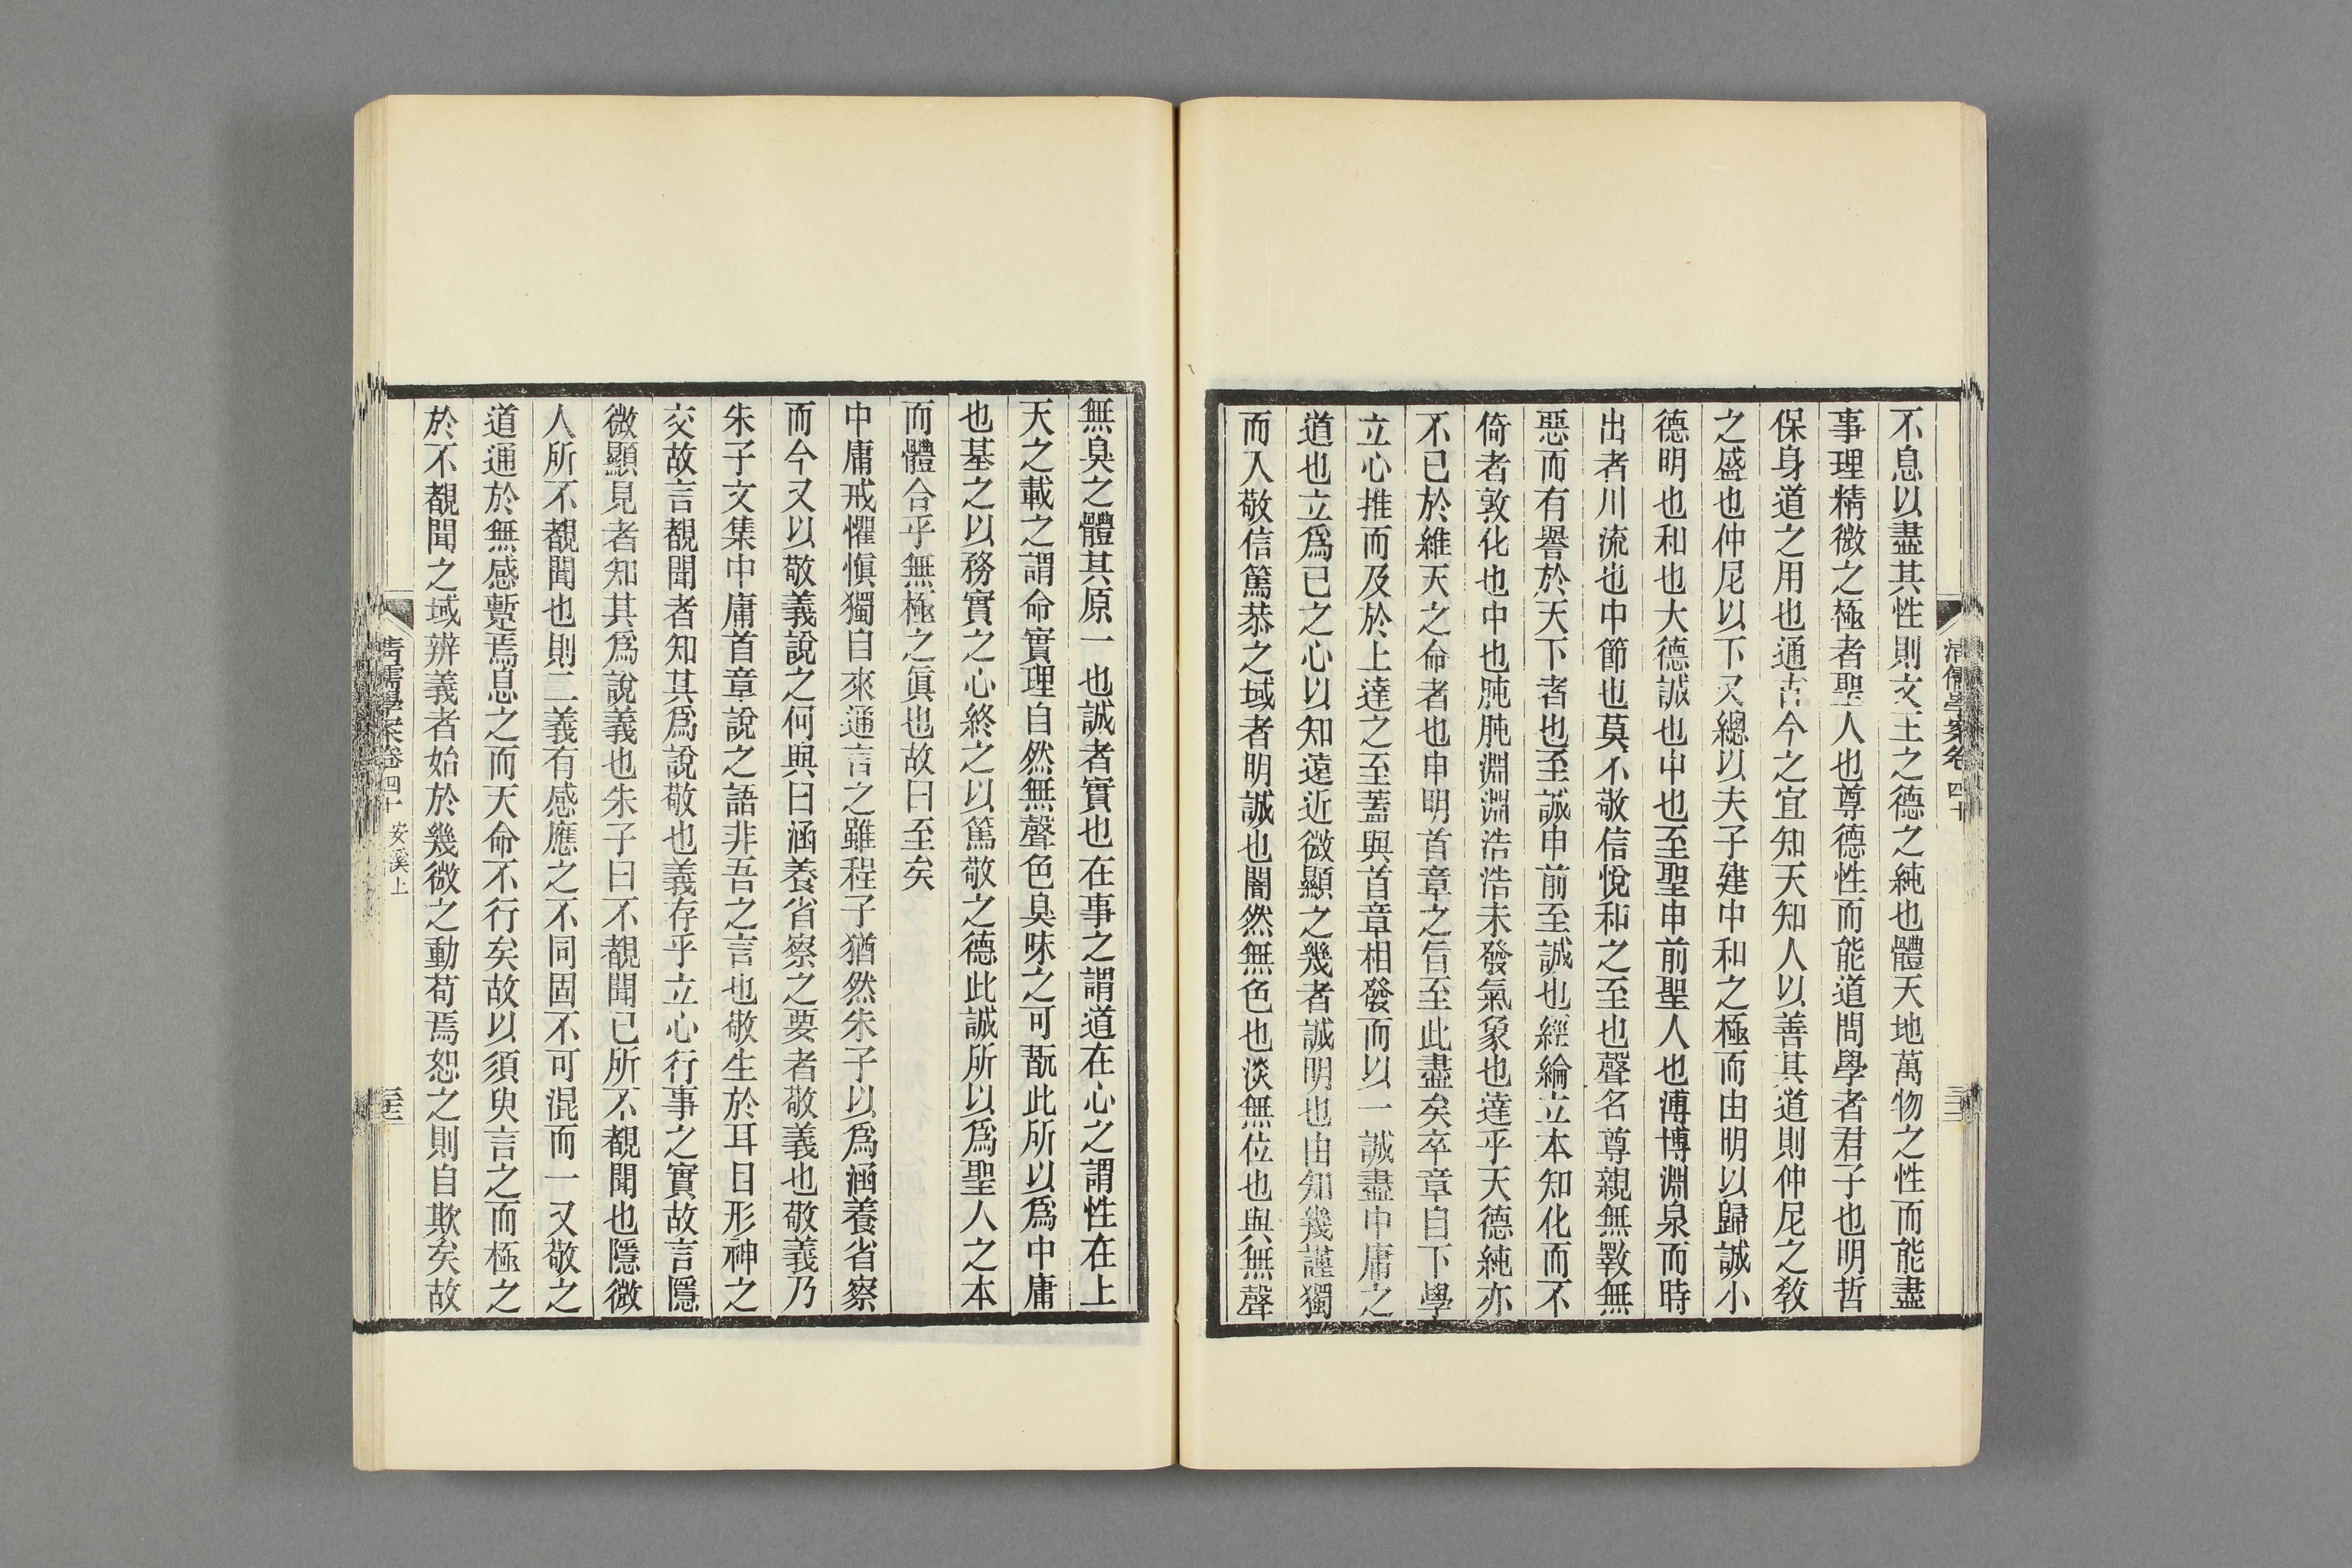 不息以盡其性則文王之德之純也體天地萬物之性而能盡
事理精微之極者聖人也尊德性而能道問學者君子也明哲
保身道之用也通古今之宜知天知人以善其道則仲尼之敎
之盛也仲尼以下又總以夫子建中和之極而由明以歸誠小
德明也和也大德誠也中也至聖申前聖人也溥博淵泉而時
出者川流也中節也莫不敬信悅和之至也聲名尊親無斁無
惡而有譽於天下者也至誠申前至誠也經綸立本知化而不
倚者敦化也中也肫肫淵淵浩浩未發氣象也達乎天德純亦
不已於維天之命者也申明首章之旨至此盡矣卒章自下學
立心推而及於上達之至蓋與首章相發而以一誠盡中庸之
道也立爲己之心以知遠近微顯之幾者誠明也由知幾謹獨
而入敬信篤恭之域者明誠也闇然無色也淡無位也與無聲
清儒學案卷四十
無臭之體其原一也誠者實也在事之謂道在心之謂性在上
天之載之謂命實理自然無聲色臭味之可翫此所以爲中庸
也基之以務實之心終之以篤敬之德此誠所以爲聖人之本
而體合乎無極之眞也故曰至矣
中庸戒懼愼獨自來通言之雖程子猶然朱子以爲涵養省察
而今又以敬義說之何與曰涵養省察之要者敬義也敬義乃
朱子文集中庸首章說之語非吾之言也敬生於耳目形神之
交故言覩聞者知其爲說敬也義存乎立心行事之實故言隱
微顯見者知其爲說義也朱子曰不覩聞己所不覩聞也隱微
人所不覩聞也則二義有感應之不同固不可混而一又敬之
道通於無感蹔焉息之而天命不行矣故以須臾言之而極之
於不覩聞之域辨義者始於幾微之動苟焉恕之則自欺矣故
清儒學案卷四十 安溪上